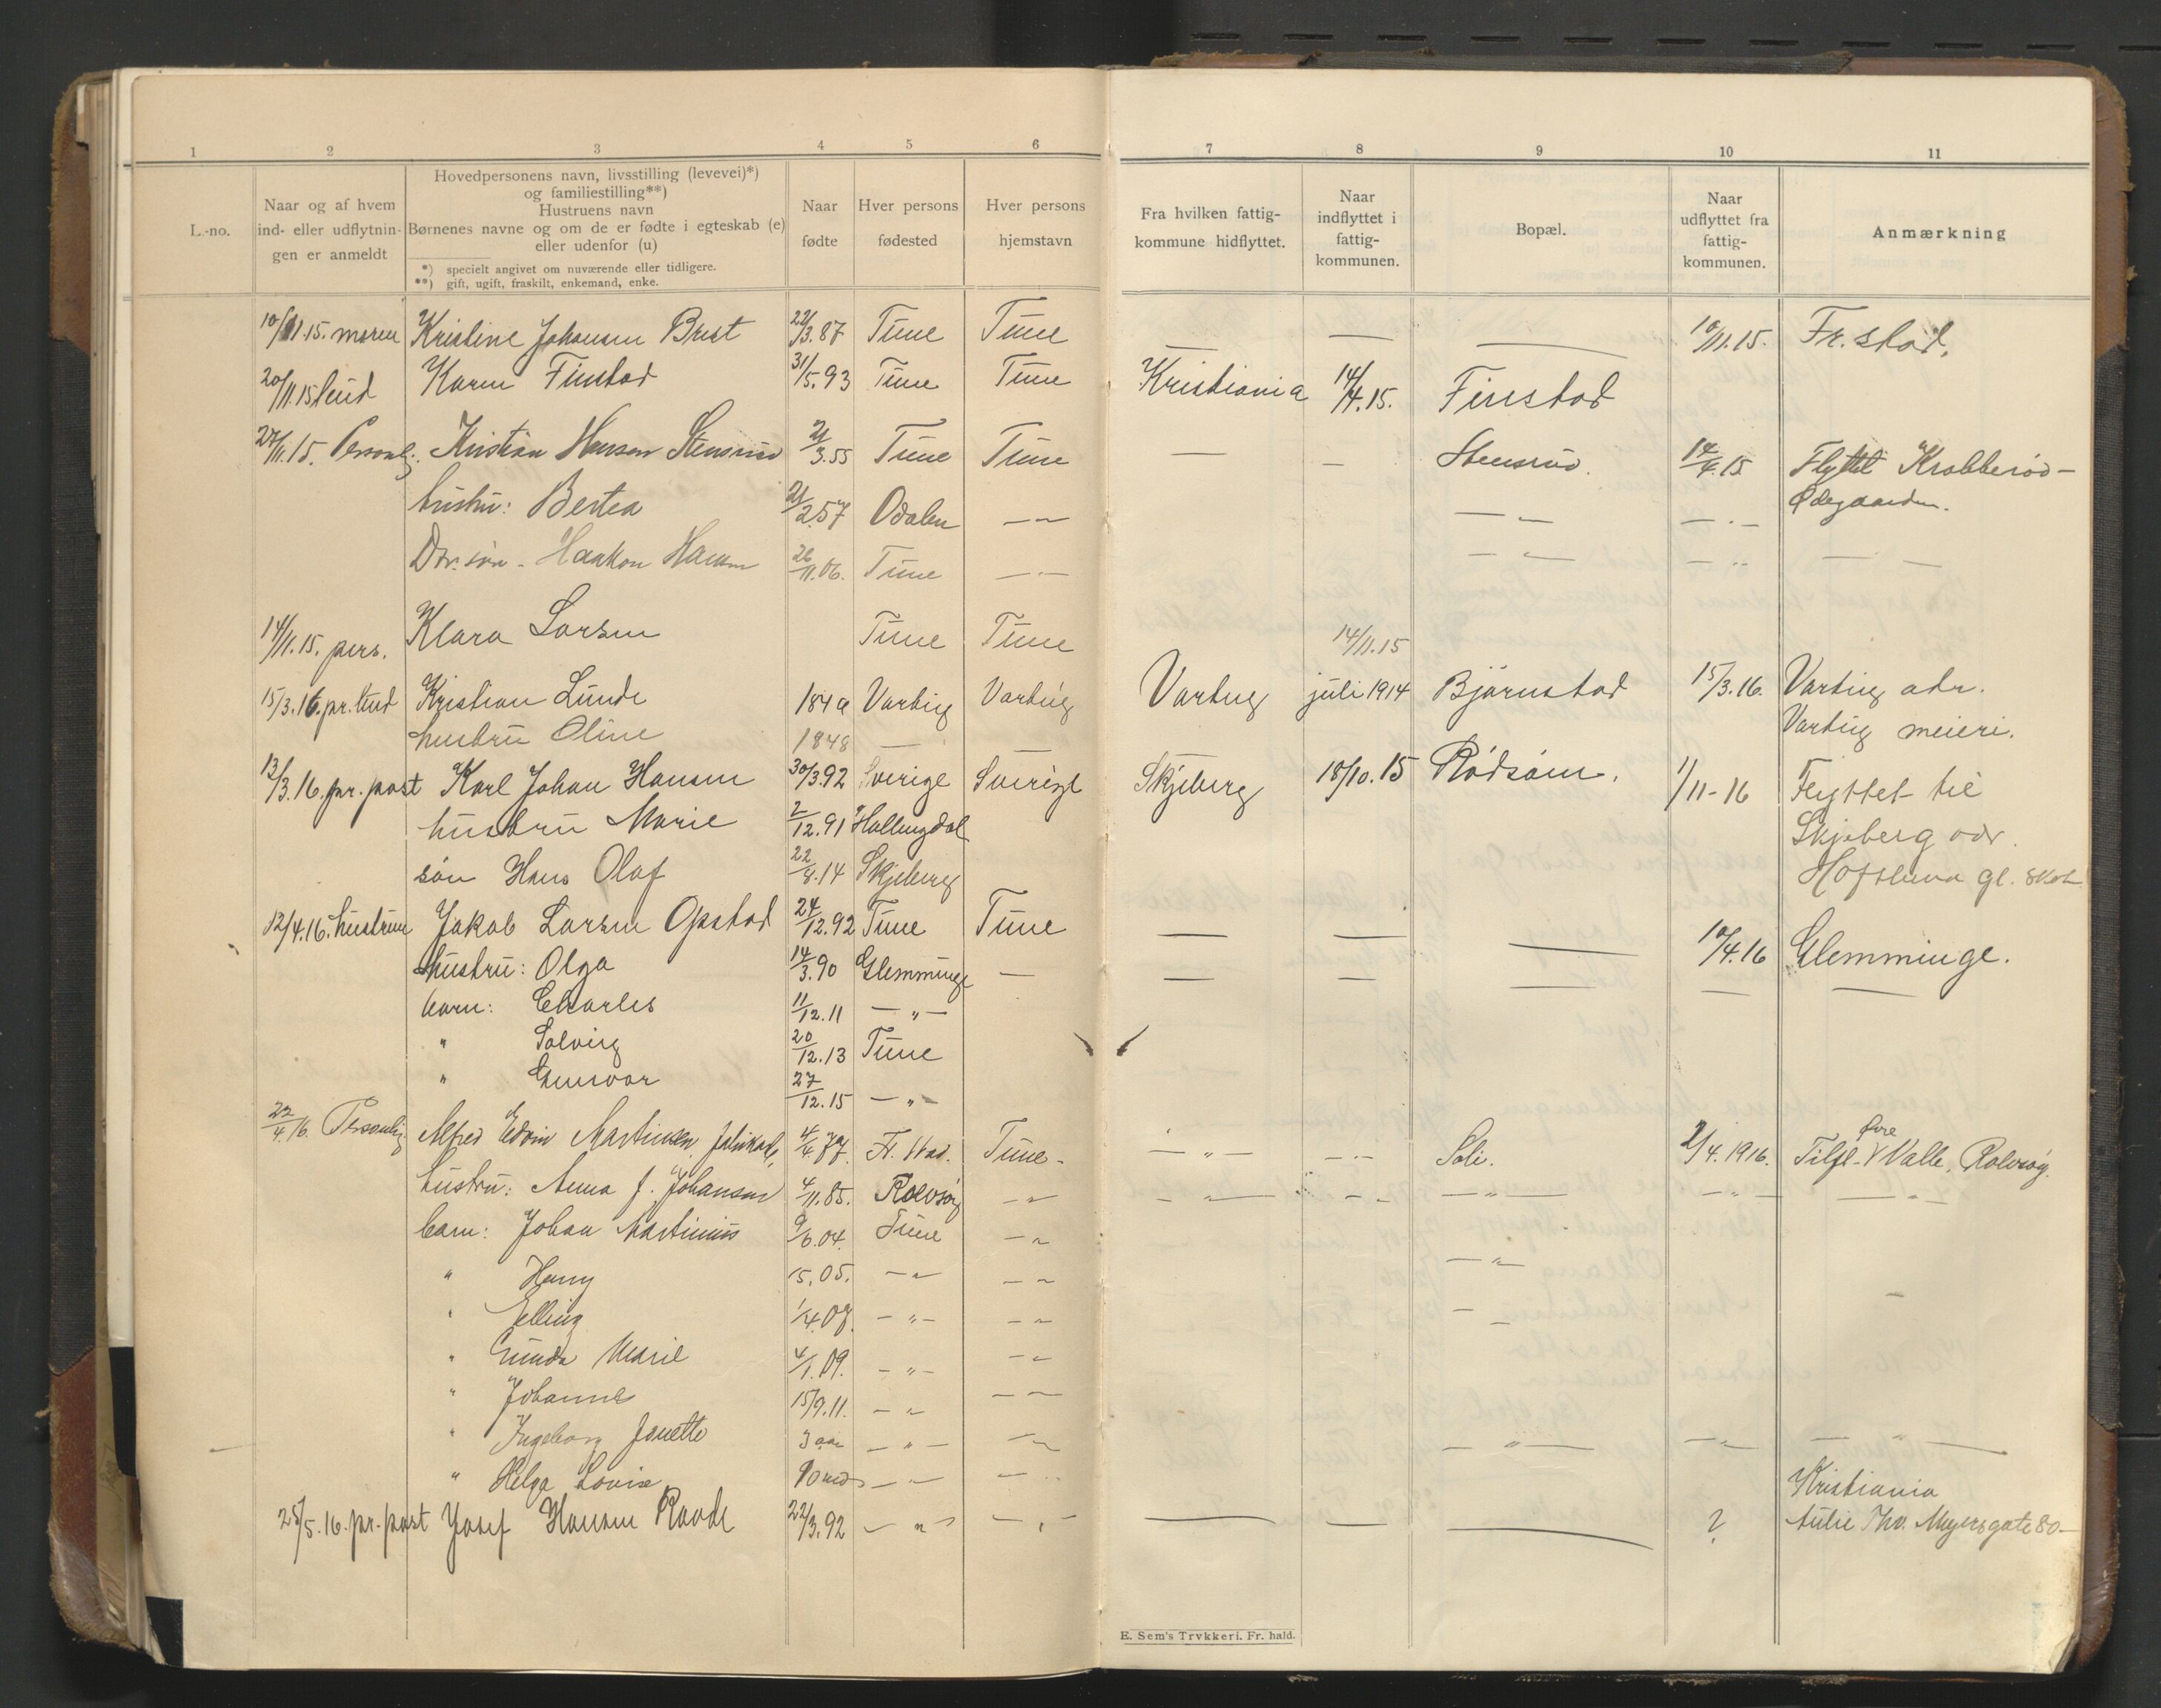 1 2 3 4 5 6 7 8 9 10 11
L.-no.
Naar og af hvem
ind- eller udflytnin-
gen er anmeldt
Hovedpersonens navn, livsstilling (levevei)*)
og familiestilling**)
Hustruens navn
Børnenes navne og om de er fødte i egteskab (e)
eller udenfor (u)
*) specielt angivet om nuværende eller tidligere.
**) gift, ugift, fraskilt, enkemand, enke.
Naar
fødte
Hver persons
fødested
Hver persons
hjemstavn
Fra hvilken fattig-
kommune hidflyttet.
Naar
indflyttet i
fattig-
kommunen.
Bopæl.
Naar
udflyttet fra
fattig-
kommunen.
Anmærkning
10/11.15. moren Kristine Johansen Brest 22/3.87 Tune Tune — — — 10/11.15. Fr.stad.
20/11.15 Karen Finstad 31/5.93 Tune Tune Kristiania 14/4.15. Finstad
27/11.15. Personlig. Kristian Hansen Stensrud 21/3.55 Tune Tune — — Stensrud. 14/4.15 Flyttet Krabberød-
Ødegaarden.
hustru: Bertea 21/2.57 Odalen — " — " — — " —
Dtr. søn - Haakon Hansen 26/11.06. Tune — " — — " — — " — — —
14/11.15. pers. Klara Larsen Tune Tune 14/11.15
15/3.16. pr. bud Kristian Lunde 1849 Varteig Varteig Varteig juli 1914 Bjørnstad 15/3.16. Varteig adr.
hustru Oline 1848 — Varteig meieri.
13/3.16. pr. post Karl Johan Hansen 30/3.92 Sverige Sverige Skjeberg 18/10.15 Rødsøm. 1/11-16 Flyttet til
hustru Marie 2/12.91 Hallingdal Skjeberg adr.
søn Hans Olaf 22/8.14 Skjeberg Hafslund gl. skole
12/4.16. hustruen Jakob Larsen Opstad 24/12.92 Tune Tune — — — 10/4.16 Glemminge.
hustru: Olga 14/3.90 Glemminge — — — — — —
barn: Charles 11/12.11 — " —
" Solveig 20/12.13 Tune
" Gunvor 27/12.15 — " —
22/4.16. Personlig Alfred Edvin Martinsen, 4/4.79. Fr. stad. Tune - — " — — " — Soli. 2/4.1916. Tilfl. Øvre Valle, Rolvsøy.
hustru: Anna J. Johansen 4/11.85. Rolvsøy — " — " — — " — — " — — " — — " —
barn: Johan Martinius 9/6.04. Tune — "
" Harry 15.05. — " — " — "
" Elling 1/4.07. — " — — " —
" Gunda Marie 4/1.09. — " — — "
" Johanne 15/9.11. — " — "
" Ingeborg Janette 3 aar — " — — " — " — — " — " —
" Helga Lovise 9 mds — " — — "
25/5.16. pr. post Josef Hansen Raade 22/3.92 — " — — " — — — — ? Kristiania
Aulie Thv. Meyersgate 80 —
E. Sem's Trykkeri. Fr. hald.